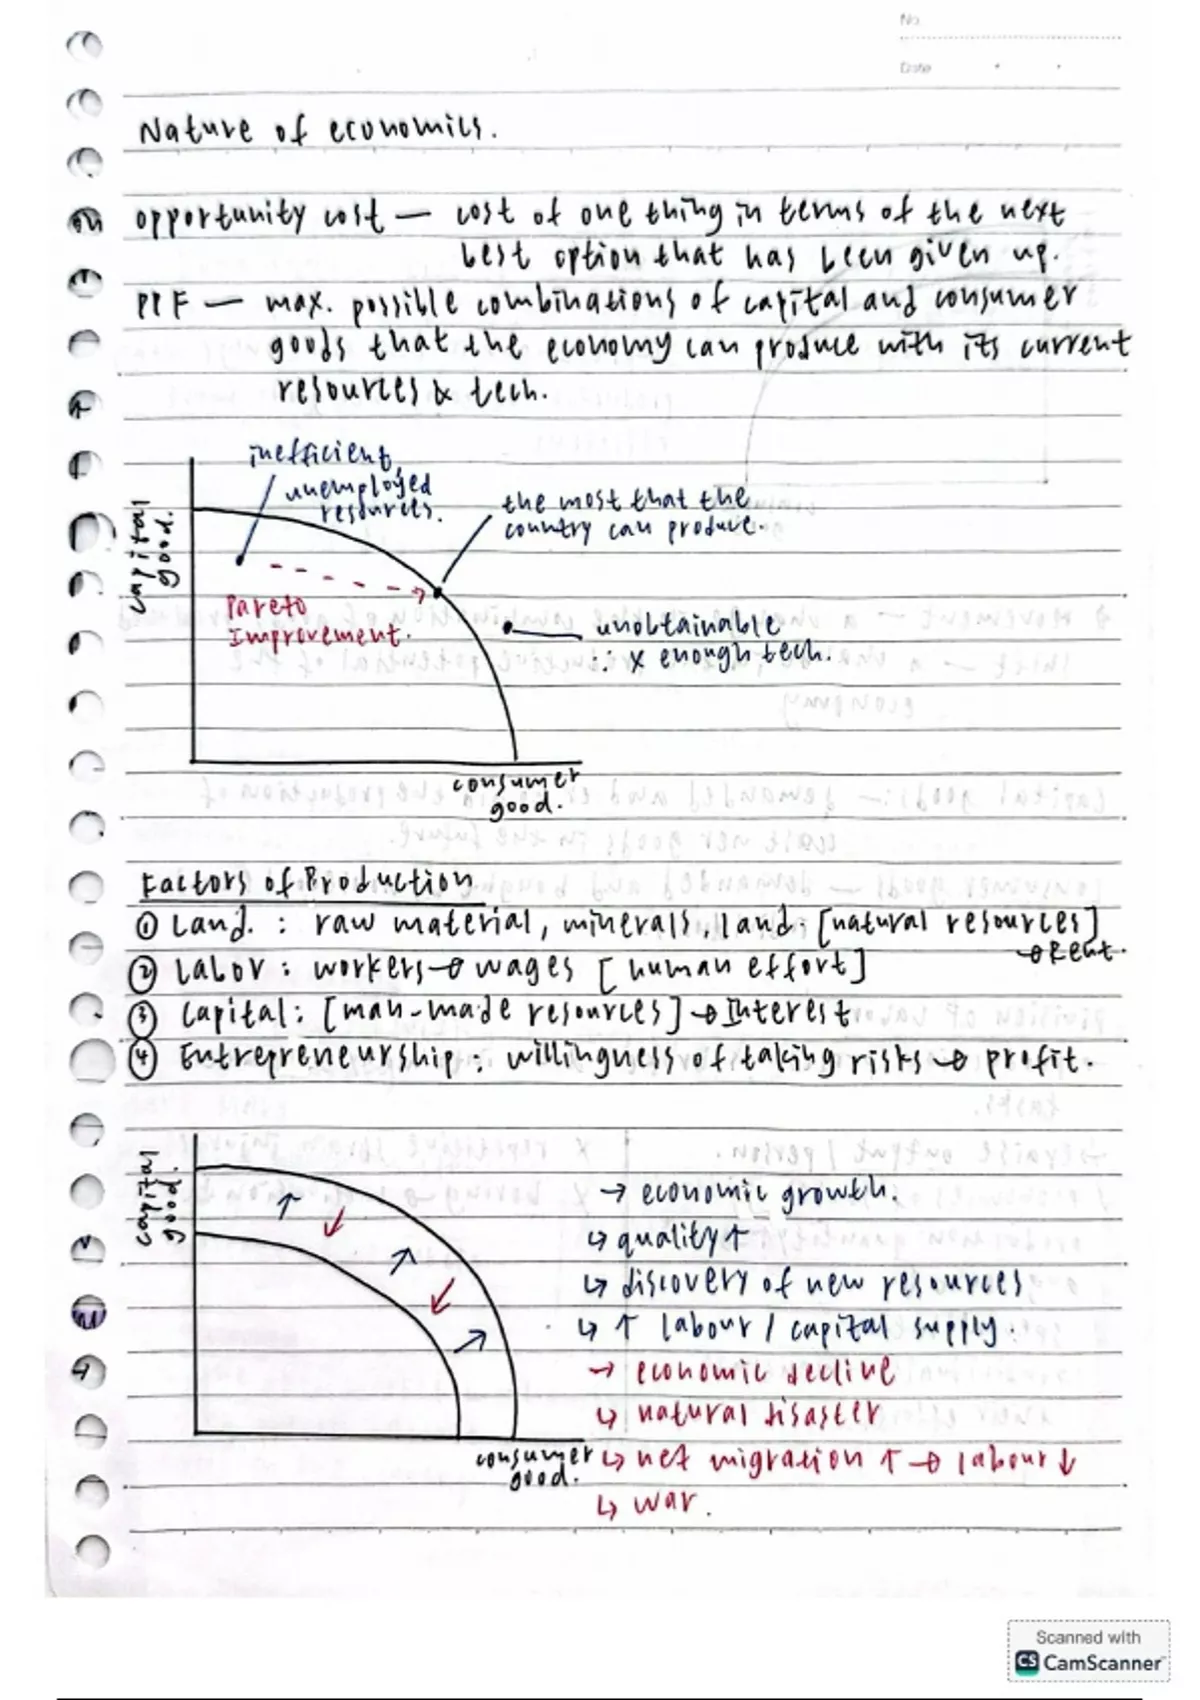 No.
Date
Nature of economics.
opportunity cost — cost of one thing in terms of the next
best option that has been given up.
PPF — max. possible combinations of capital and consumer
goods that the economy can produce with its current
resources & tech.
inefficient,
unemployed
resources.
the most that the
country can produce.
capital
good.
Pareto
Improvement.
unobtainable
∵ x enough tech.
consumer
good.
Factors of Production
① Land. : raw material, minerals, land. [natural resources]
→ Rent.
② Labor : workers → wages [human effort]
③ Capital : [man-made resources] → Interest
④ Entrepreneurship : willingness of taking risks → profit.
capital
good.
→ economic growth.
↳ quality ↑
↳ discovery of new resources
↳ ↑ labour / capital supply.
→ economic decline
↳ natural disaster
consumer
good.
↳ net migration ↑ → labour ↓
↳ war.
Scanned with
CS CamScanner